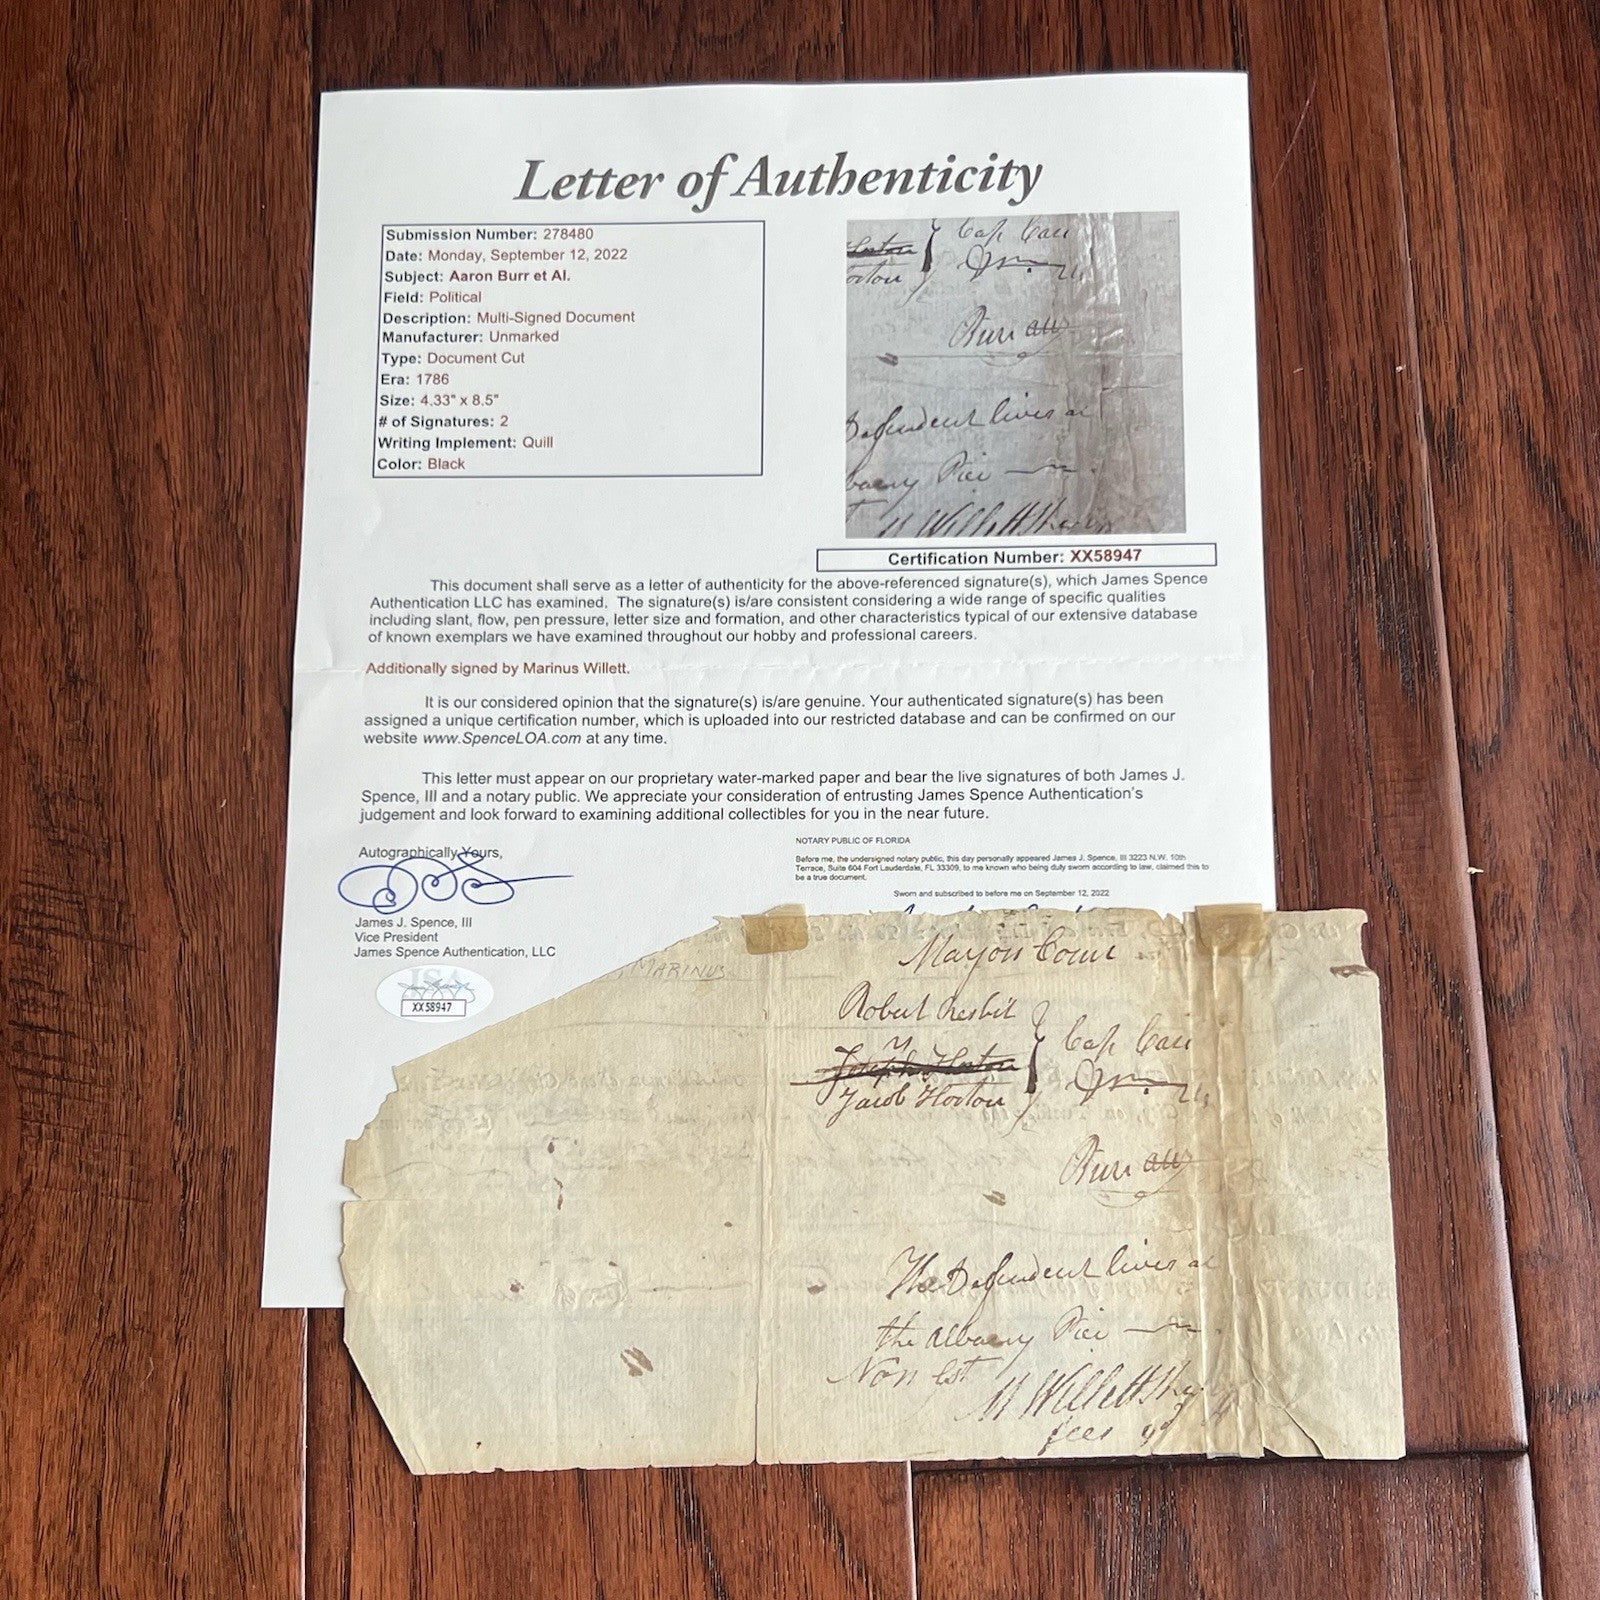 Letter of Authenticity
Submission Number: 278480
Date: Monday, September 12, 2022
Subject: Aaron Burr et Al.
Field: Political
Description: Multi-Signed Document
Manufacturer: Unmarked
Type: Document Cut
Era: 1786
Size: 4.33" x 8.5"
# of Signatures: 2
Writing Implement: Quill
Color: Black
Cap Cau
Burr atty
Defendent lives at
Pier
M Willett Sheriff
Certification Number: XX58947
This document shall serve as a letter of authenticity for the above-referenced signature(s), which James Spence
Authentication LLC has examined. The signature(s) is/are consistent considering a wide range of specific qualities
including slant, flow, pen pressure, letter size and formation, and other characteristics typical of our extensive database
of known exemplars we have examined throughout our hobby and professional careers.
Additionally signed by Marinus Willett.
It is our considered opinion that the signature(s) is/are genuine. Your authenticated signature(s) has been
assigned a unique certification number, which is uploaded into our restricted database and can be confirmed on our
website www.SpenceLOA.com at any time.
This letter must appear on our proprietary water-marked paper and bear the live signatures of both James J.
Spence, III and a notary public. We appreciate your consideration of entrusting James Spence Authentication's
judgement and look forward to examining additional collectibles for you in the near future.
Autographically Yours,
James J. Spence, III
Vice President
James Spence Authentication, LLC
JSA
XX58947
NOTARY PUBLIC OF FLORIDA
Before me, the undersigned notary public, this day personally appeared James J. Spence, III 3223 N.W. 10th
Terrace, Suite 604 Fort Lauderdale, FL 33309, to me known who being duly sworn according to law, claimed this to
be a true document.
Sworn and subscribed to before me on September 12, 2022
MARINUS
Mayors Court
Robert Nesbit
v
Joseph Horton
Jacob Horton
Cap Cau
Burr atty
The Defendent lives at
the Albany Pier
Non Est
M Willett Sheriff
fees